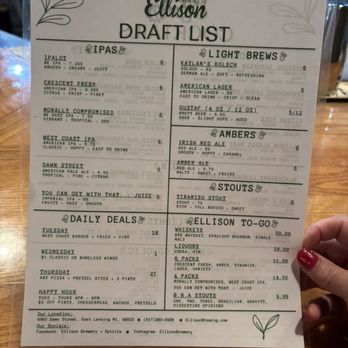 Ellison
DRAFT LIST
IPAS
IPALOT
6
NE IPA - 7.25%
SMOOTH - CREAMY - JUICE
CRESCENT FRESH
6
AMERICAN IPA
CRISP - PINEY
MORALLY COMPROMISED
6
NE HAZY IPA - 7.5%
VIBRANT - TROPICAL - DDH
WEST COAST IPA
AMERICAN IPA - 6.7%
CLASSIC - HOPPY - EASY TO DRINK
DAWN STREET
AMERICAN PALE ALE
TROPICAL - PINE - CITRUS
YOU CAN GET WITH THAT... JUICE
IMPERIAL IPA
RAUS - SMOOTH
DAILY DEALS
TUESDAY
10
WEST COAST BURGER + FRIES + PINT
WEDNESDAY
$1 CLASSIC OR BONELESS WINGS
THURSDAY
21
ANY PIZZA + PRETZEL BITES + 2 PINTS
HAPPY HOUR
TUES - THURS 4PM - 6PM
$5 OFF PINTS, CHEESEBREAD, NACHOS, PRETZELS
LIGHT BREWS
KAYLAN'S KOLSCH
6
KOLSCH
GERMAN ALE - SOFT - REFRESHING
AMERICAN LAGER
AMERICAN LAGER
EASY TO DRINK - CRISP - CLEAN
GUSTAF (4 OZ / 12 OZ)
5/12
BRETT BEER
SLIGHT HOPS - AGED
AMBERS
IRISH RED ALE
RED ALE
SMOOTH - HOPPY - CARAMEL
AMBER ALE
RED ALE
MALTY - SWEET - FRUITY
STOUTS
TIRAMISU STOUT
STOUT
RICH - FULL BODIED - SWEET
ELLISON TO-GO
WHISKEYS
RYE WHISKEY, STRAIGHT BOURBON, SINGLE
MALT
LIQUORS
29.99
VODKA, GIN
6 PACKS
CRESCENT FRESH, AMBER, TIRAMISU,
LAGER, VARIETY
4 PACKS
14.99
MORALLY COMPROMISED, WEST COAST IPA,
YOU CAN GET WITH THAT - JUICE
B.B.A STOUTS
ONE, TWO, THREE, BRAZILIAN, GRAVITY,
DISSENTING OPINION
Our Location:
4903 Dawn Street, East Lansing MI, 48823
EllisonBrewing.com
Our Socials:
Facebook: Ellison Brewery + Spirits
Instagram: EllisonBrewery